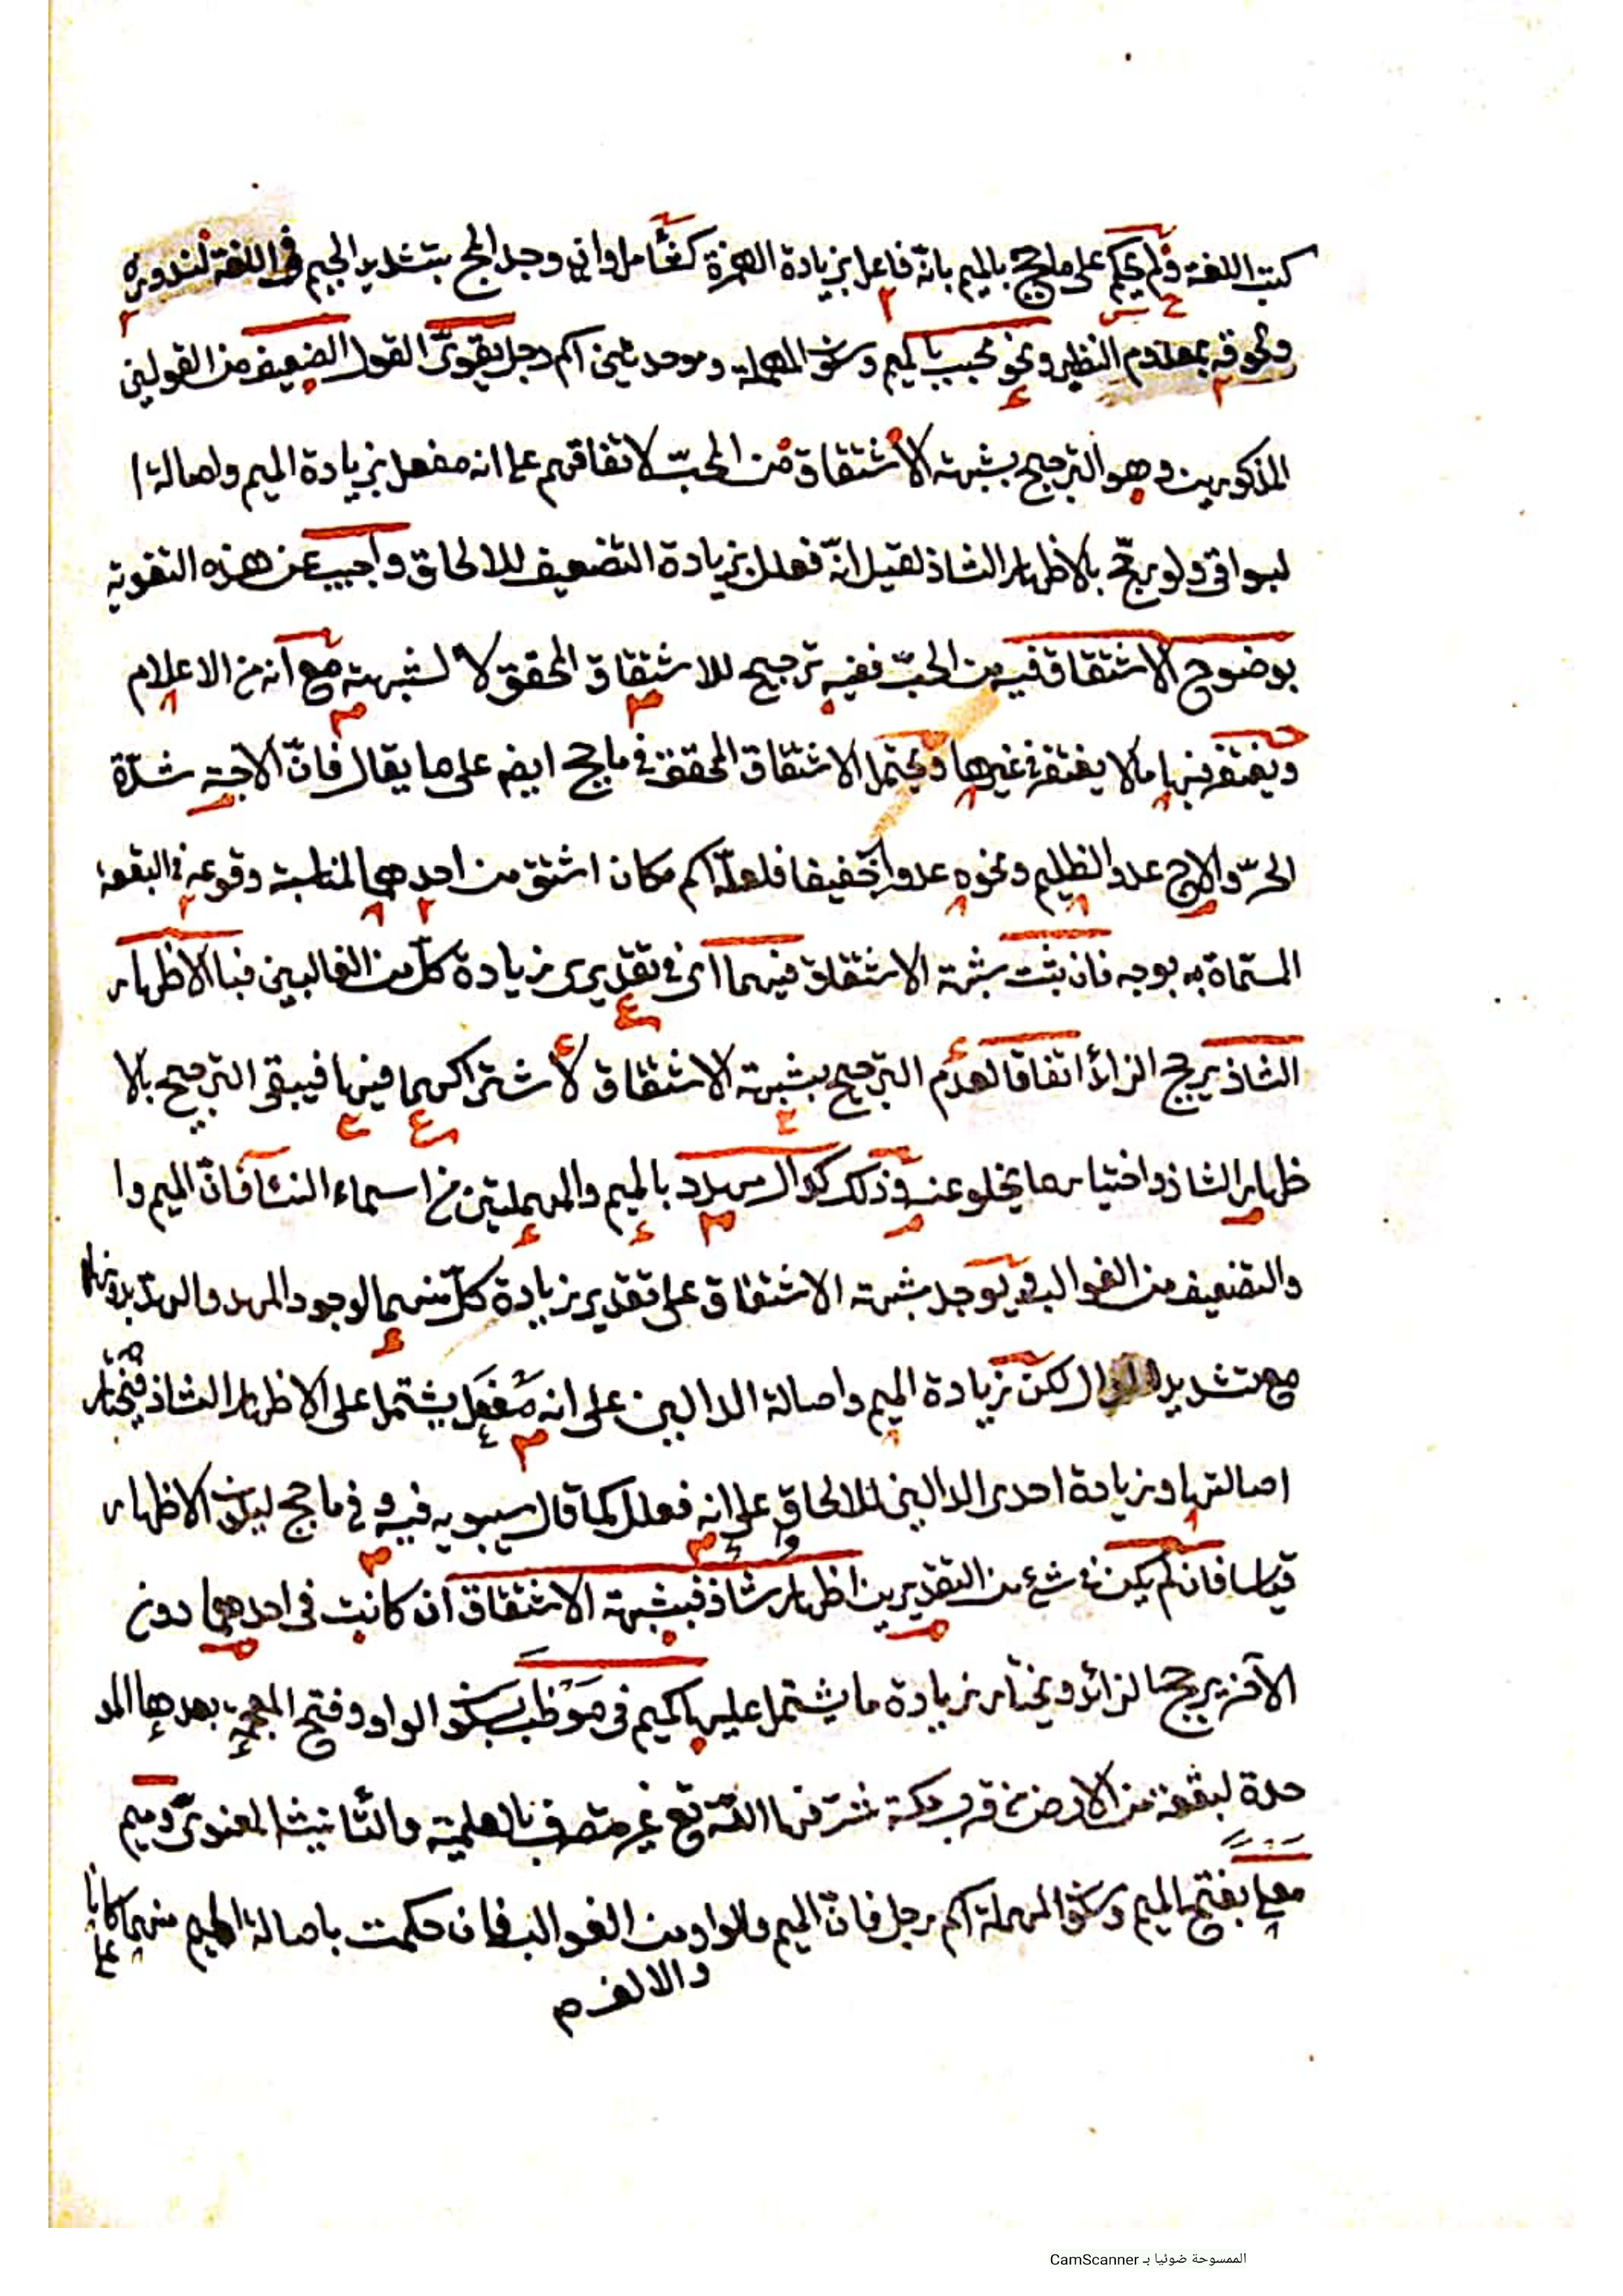 كتب اللغة ولم يحكم على مأجج بالميم بانّه فاعل بزيادة الهمزة كشأمل وان وجد المج بتشديد الجيم في اللغة لندوره
ولحوقه بمعدوم النظير ونحو محبب بالميم وسكون المهملة وموحدتين اسم رجل يقوى القول الضعيف من القولين
المذكورين وهو الترجيح بشبهة الاشتقاق من الحبّ لاتفاقهم على انه مفعل بزيادة الميم واصالة ا
لبواقي ولو رجّح بالاظهار الشاذ لقيل انّه فعلل بزيادة التضعيف للالحاق واجيب عن هذه التقوية
بوضوح الاشتقاق فيه من الحبّ ففيه ترجيح للاشتقاق المحقق لا لشبهته مع انه من الاعلام
ويغتفر فيها ما لا يغتفر في غيرها ويحتمل الاشتقاق المحقق في ماجج ايضا على ما يقال فانّ الاجّة شدّة
الحرّ والاجّ عدو الظليم ونحوه عدوا خفيفا فلعلّه اسم مكان اشتق من احدهما لمناسبة وقوعه في البقعة
المسماة به بوجه فان ثبتت شبهة الاشتقاق فيهما اى في تقديرى زيادة كلّ من الغالبين فبالاظهار
الشاذ يرجح الزائد اتفاقا لعدم الترجيح بشبهة الاشتقاق لاشتراكهما فيها فيبقى الترجيح بالا
ظهار الشاذ واختيار ما يخلو عنه وذلك كدال مهدد بالميم والمهملتين من اسماء النساء فانّ الميم وا
والتضعيف من الغوالب ويوجد شبهة الاشتقاق على تقدير زيادة كلّ منهما لوجود المهد والهدّ بدونها
مع تشديد الدال لكن زيادة الميم واصالة الدالين على انه مَفعَل يشتمل على الاظهار الشاذ فيختار
اصالتها وزيادة احدى الدالين للالحاق على انه فعلل كما قال سيبويه فيه و في ماجج ليكون الاظهار
قياسا فان لم يكن في شئ من التقديرين اظهار شاذ فبشبهة الاشتقاق ان كانت في احدهما دون
الآخر يرجح الزائد ويختار زيادة ما يشتمل عليها كميم في مَوْظَب بسكون الواو وفتح المعجمة بعدها المو
حدة لبقعة من الارض في قرب مكة شرّفها اللّه تع غير متصرف بالعلمية والتأنيث المعنوى وميم
معلى بفتح الميم وسكون المهملة اسم رجل فانّ الميم والواو من الغوالب فان حكمت باصالة الميم منهما كانا
على
والالف م
الممسوحة ضوئيا بـ CamScanner